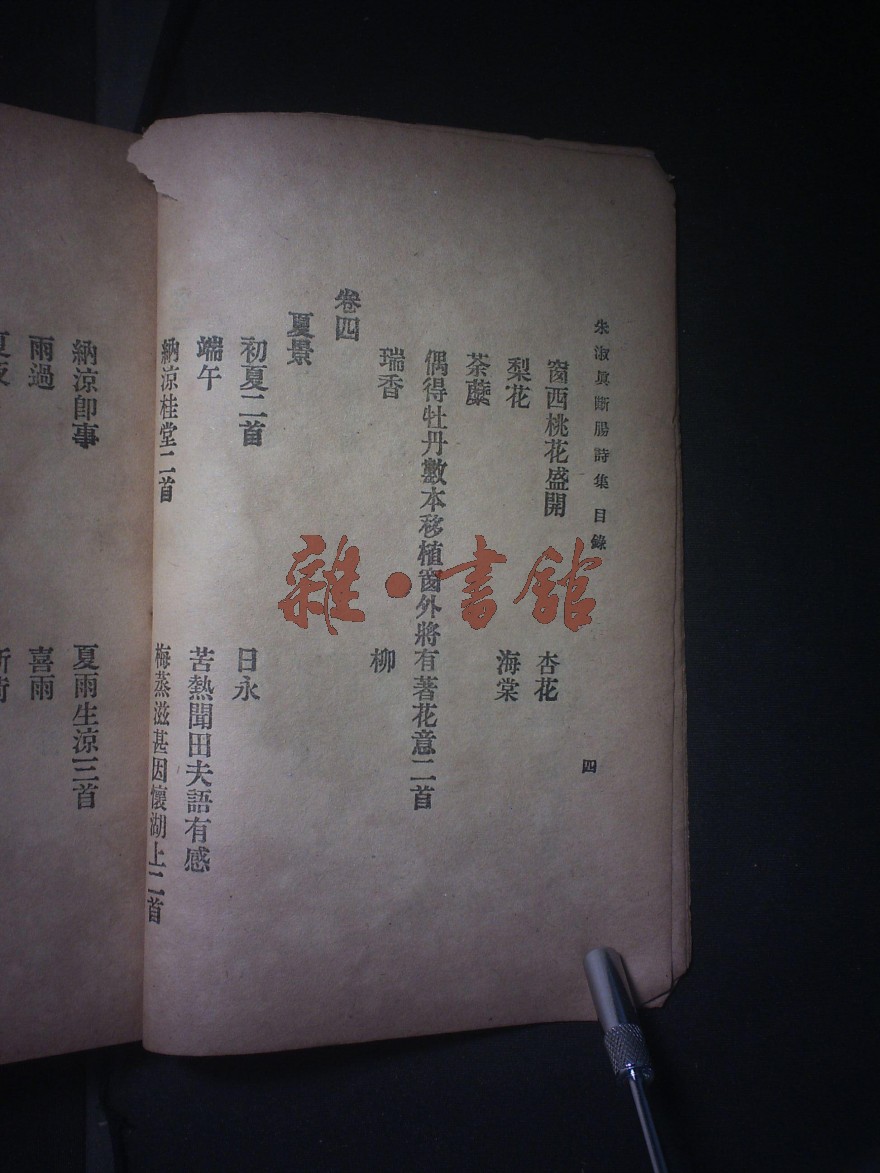 朱淑眞斷腸詩集 目錄
四
窗西桃花盛開
杏花
梨花
海棠
荼蘼
偶得牡丹數本移植窗外將有著花意二首
瑞香
柳
卷四
夏景
初夏二首
日永
端午
苦熱聞田夫語有感
納涼桂堂二首
梅蒸滋甚因懷湖上二首
納涼卽事
夏雨生涼三首
雨過
喜雨
雜·書館